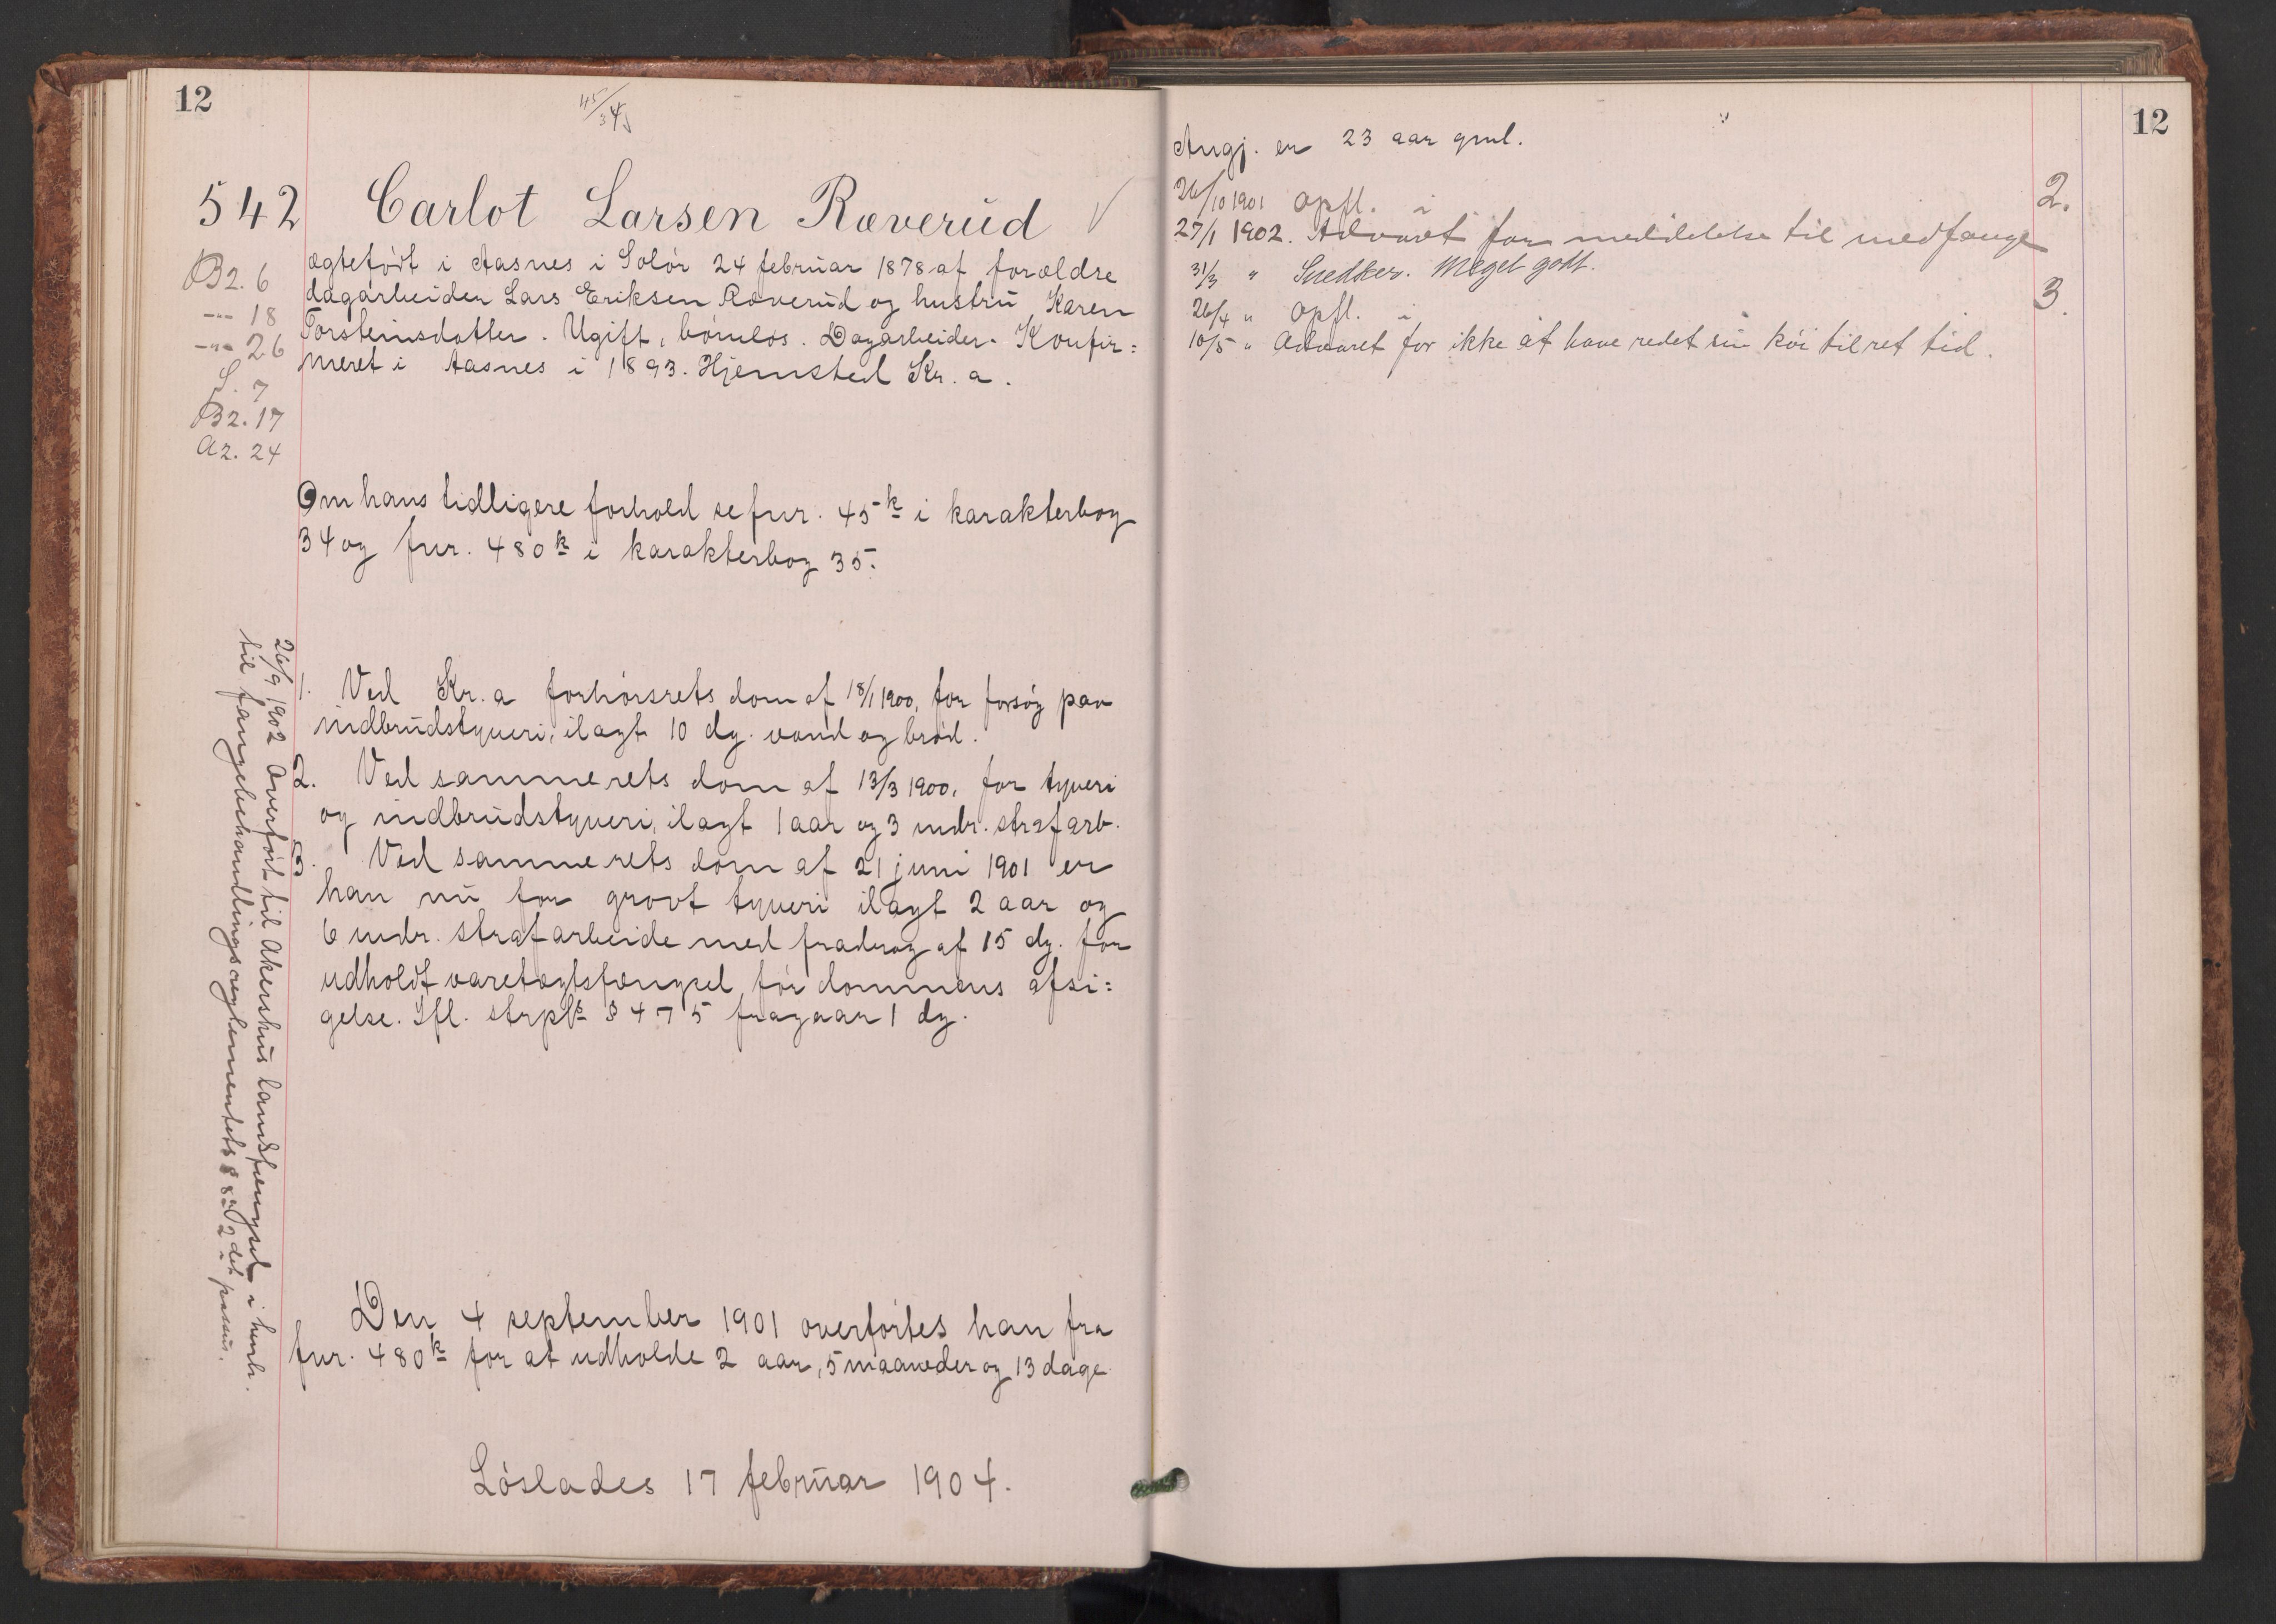 12
45/34
542 Carlot Larsen Ræverud
B2. 6
-"- 18
-"- 26
S. 7
B2. 17
A2. 24
ægtefødt i Aasnes i Solør 24 februar 1878 af forældre
dagarbeider Lars Eriksen Ræverud og hustru Karen
Torsteinsdatter. Ugift, børnløs. Dagarbeider. Konfir=
meret i Aasnes i 1893. Hjemsted Kr.a.
Om hans tidligere forhold se fnr. 45k i karakterbog
34 og fnr. 480k i karakterbog 35.
1. Ved Kr.a forhørsrets dom af 18/1 1900, for forsøg paa
indbrudstyveri, ilagt 10 dg. vand og brød.
2. Ved samme rets dom af 13/3 1900, for tyveri
og indbrudstyveri, ilagt 1 aar og 3 mdr. strafarb.
3. Ved samme rets dom af 21 juni 1901 er
han nu for grovt tyveri ilagt 2 aar og
6 mdr. strafarbeide med fradrag af 15 dg. for
udholdt varetægtsfængsel før dommens afsi=
gelse. Ifl. strpl. § 475 fragaar 1 dg.
26/9 1902 Overført til Akershus landsfængsel i henh.
til fangebehandlingsreglementets § 82 2det passus.
Den 4 september 1901 overførtes han fra
fnr. 480k for at udholde 2 aar, 5 maaneder og 13 dage
Løslades 17 februar 1904.
12
Angj. er 23 aar gml.
26/10 1901 Opfl. i 2.
27/1 1902. Advaret for meddelelse til medfange
31/3 " Snedker. Meget godt.
26/4 " Opfl. i 3.
10/5 " Advaret for ikke at have redet sin køi til ret tid.